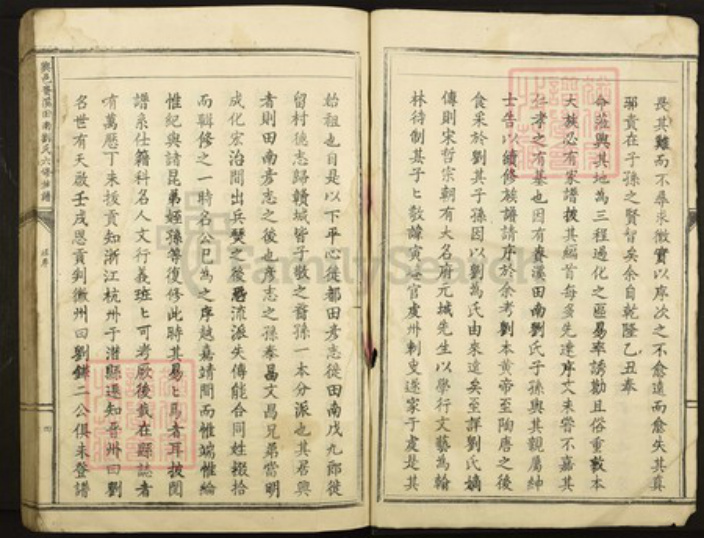 畏其難而不尋求徵實以序次之不愈遠而愈失其真
耶責在子孫之賢智矣余自乾隆乙丑奉
命蒞興其地為三程過化之區易率誘勸且俗重敦本
大族必有家譜披其編首每多先達序文未嘗不嘉其
仁孝之有基也因有春溪田南劉氏子孫與其親屬紳
士告以續修族譜請序於余考劉本黃帝至陶唐之後
食采於劉其子孫因以劉為氏由來遠矣至詳劉氏嫡
傳則宋哲宗朝有大名府元城先生以學行文藝為翰
林待制其子敦諱寅官虔州刺史遂家于虔是其
始祖也自是以下平心徙都田彥志徙田南戊九郎徙
留村德志歸贛城皆子敬之裔孫一本分派也其居興
者則田南彥志之後也彥志之孫泰昌文昌兄弟當明
成化宏治間出兵燹之後恐流派失傳能合同姓掇拾
而輯修之一時名公已為之序越嘉靖間而惟端惟綸
惟紀與諸昆弟姪孫等復修此時其易ヒ為者耳披閱
譜系仕籍科名人文行義班ヒ可考厥後載在縣誌者
有萬曆丁未拔貢知浙江杭州于潛縣遷知晉州曰劉
名世有天啟壬戌恩貢判徽州曰劉鎌二公俱未登譜
興邑春溪田南劉氏六修族譜
FamilySearch